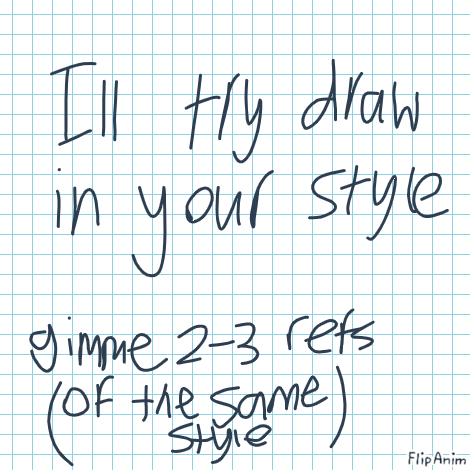 Ill try draw
in your style
gimme 2-3 refs
(of the same
style)
FlipAnim